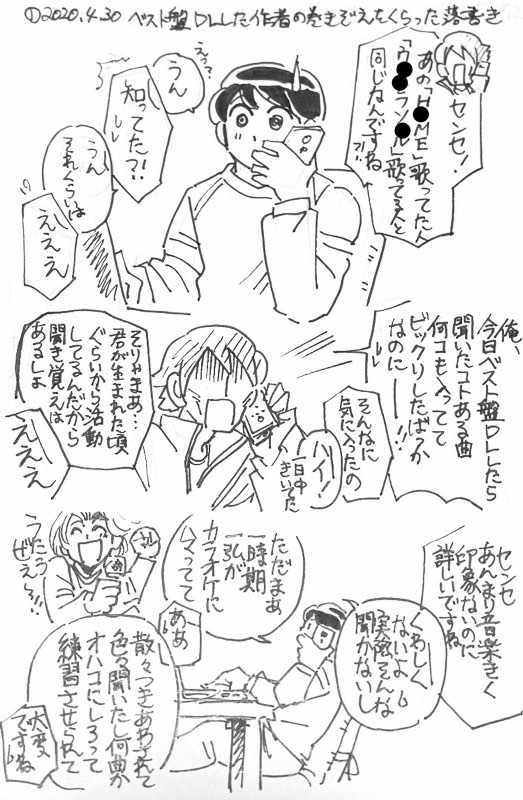 ①2020.4.30 ベスト盤DLした作者の巻きぞえをくらった落書き
センセ!
あの「H●ME」歌ってた人
「ウ●●ラソ●ル」歌ってる人と
同じなんですね!!
えっ?
うん
知ってた?!
うん
それくらいは
えええ
俺、
今日ベスト盤DLしたら
聞いたコトある曲
何コも入ってて
ビックリしたばっか
なのにーー!!
そんなに
気に入ったの
ハイ!
一日中
きいてた
そりゃまあ…
君が生まれた頃
ぐらいから活動
してるんだから
聞き覚えは
あるしょ
えええ
センセ
あんまり音楽きく
印象ないのに
詳しいですね
くわしく
ないよ
実際そんな
聞かないし
ただまあ
一時期
弘が
カラオケに
ハマってて
ああ
うたうぜえー!!
散々つきあわされて
色々聞いたし何曲か
オハコにしろって
練習させられて
大変
ですね